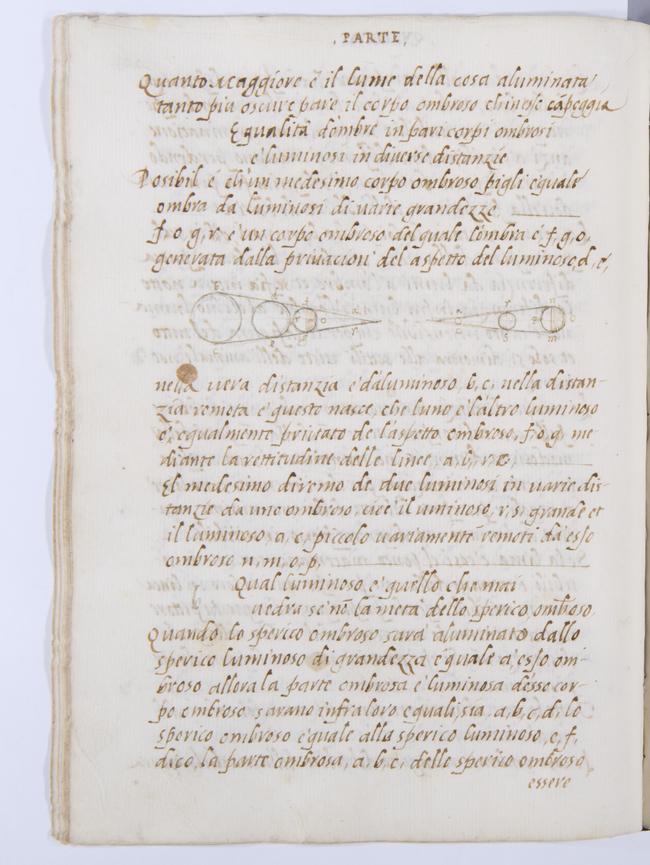 . PARTE .
Quanto Maggiore è il lume della cosa aluminata
tanto piu oscure pare il corpo ombroso chin esse campeggia
Equalità dombre in pari corpi ombrosi
e luminosi in diverse distanzie
Posibil é ch'un medesimo corpo ombroso pigli equale
ombra da luminosi di varie grandezze
f, o, g, r, e un corpo ombroso del quale l'ombra é, f, g, o,
generata dalla privacion' del aspetto del luminoso, d, e,
nella vera distanzia e dal luminoso, b, c, nella distan-
zia remota e questo nasce, che l'uno e l'altro luminoso
e, equalmente privato de l'aspetto ombroso, f, o, g, me
diante la rettitudine delle linee, a, b, r, c,
El medesimo diremo de due luminosi in varie dis-
tanzie da uno ombroso, cioè il luminoso, r, s, grande et
il luminoso, a, c, piccolo variamente remoti da esso
ombroso n, m, o, p,
Qual luminoso, e quello che mai
vedra se nō la metà dello sperico, ombroso
Quando lo sperico ombroso sarà aluminato dallo
sperico luminoso di grandezza equale a esso om-
broso allora la parte ombrosa e luminosa d'esso cor-
po ombroso sarano infra loro equali, sia, a, b, c, d, lo
sperico ombroso equale alla sperico luminoso, e, f,
dico, la parte ombrosa, a, b, c, dello sperico ombroso
essere